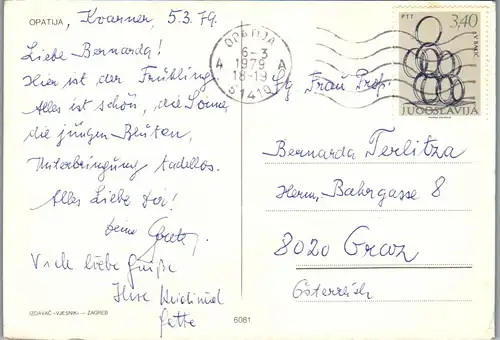 OPATIJA, Kvarner, 5.3.79.
Liebe Bernarda!
Hier ist der Frühling.
Alles ist schön, die Sonne,
die jungen Blüten,
Unterbringung tadellos.
Alles Liebe Dir!
Deine
Viele liebe Grüße
Ihre
IZDAVAČ »VJESNIK« — ZAGREB
6081
OPATIJA
6-3
4 1979 A
18-19
51410
PTT 3,40
JUGOSLAVIJA
Frau Prof.
Bernarda Terlitza
Herm. Bahrgasse 8
8020 Graz
Österreich